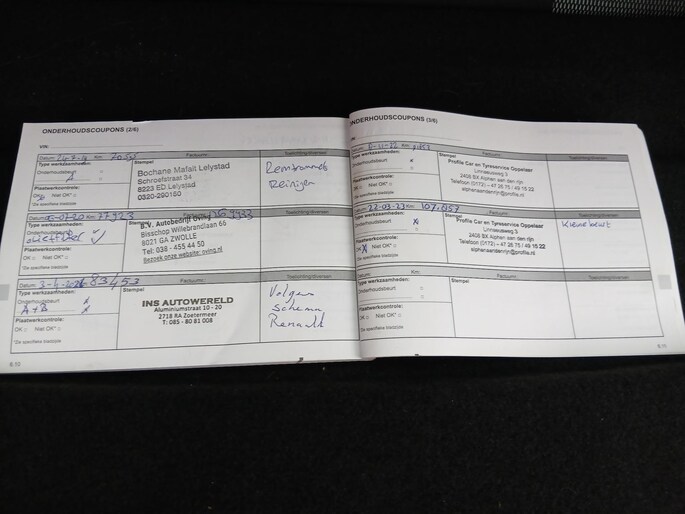 ONDERHOUDSCOUPONS (2/6)
VIN:
Datum: Km: Factuurnr.: Toelichting/diversen:
Type werkzaamheden: Stempel
Onderhoudsbeurt
Bochane Mafait Lelystad
Schroefstraat 34
8223 ED Lelystad
0320-290150
Remtrommels
Reinigen
Plaatwerkcontrole:
OK Niet OK*
*Zie specifieke bladzijde
Datum: Km: 77.923 Factuurnr.: Toelichting/diversen:
Type werkzaamheden: Stempel
Onderhoudsbeurt
B.V. Autobedrijf Oving
Bisschop Willebrandlaan 66
8021 GA ZWOLLE
Tel: 038 - 455 44 50
Bezoek onze website: oving.nl
Plaatwerkcontrole:
OK Niet OK*
*Zie specifieke bladzijde
Datum: 83453 Factuurnr.: Toelichting/diversen:
Type werkzaamheden: Stempel
Onderhoudsbeurt x
A+B x
INS AUTOWERELD
Aluminiumstraat 10 - 20
2718 RA Zoetermeer
T: 085 - 80 81 008
Volgens
schema
Renault
Plaatwerkcontrole:
OK Niet OK*
*Zie specifieke bladzijde
ONDERHOUDSCOUPONS (3/6)
VIN:
Datum: Km: Factuurnr.: Toelichting/diversen:
Type werkzaamheden: Stempel
Onderhoudsbeurt x
Profile Car en Tyreservice Oppelaar
Linnaeusweg 3
2408 BX Alphen aan den rijn
Telefoon (0172) - 47 26 75 / 49 15 22
alphenaandenrijn@profile.nl
Plaatwerkcontrole:
OK Niet OK*
*Zie specifieke bladzijde
Datum: 22-03-23 Km: 107.057 Factuurnr.: Toelichting/diversen:
Type werkzaamheden: Stempel
Onderhoudsbeurt x
Profile Car en Tyreservice Oppelaar
Linnaeusweg 3
2408 BX Alphen aan den rijn
Telefoon (0172) - 47 26 75 / 49 15 22
alphenaandenrijn@profile.nl
Kleine beurt
Plaatwerkcontrole:
OK Niet OK*
*Zie specifieke bladzijde
Datum: Km: Factuurnr.: Toelichting/diversen:
Type werkzaamheden: Stempel
Onderhoudsbeurt
Plaatwerkcontrole:
OK Niet OK*
*Zie specifieke bladzijde